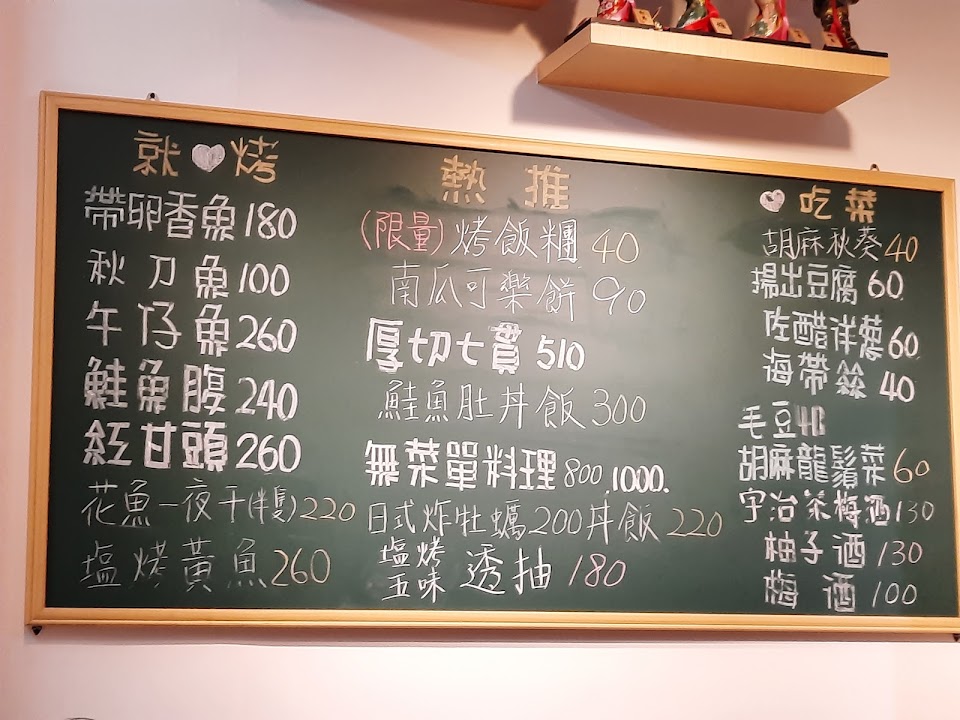 就 烤
帶卵香魚180
秋刀魚100
午仔魚260
鮭魚腹240
紅甘頭260
花魚一夜干(半隻)220
塩烤黃魚260
熱推
(限量)烤飯糰40
南瓜可樂餅90
厚切七貫510
鮭魚肚丼飯300
無菜單料理800.1000.
日式炸牡蠣200丼飯220
塩烤五味透抽180
吃菜
胡麻秋葵40
揚出豆腐60
佐醋洋蔥60
海帶絲40
毛豆40
胡麻龍鬚菜60
宇治茶梅酒130
柚子酒130
梅酒100